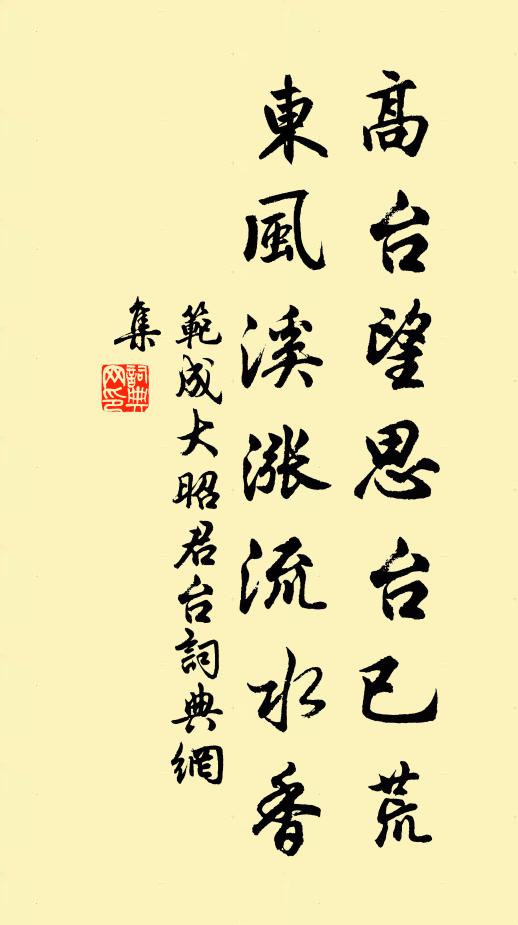 高台望思台已荒
東風溪漲流水香
範成大昭君台詞典網
集
詞典
网印